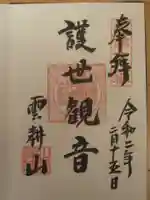 奉拝
令和二年
二月十五日
護世観音
雲耕山